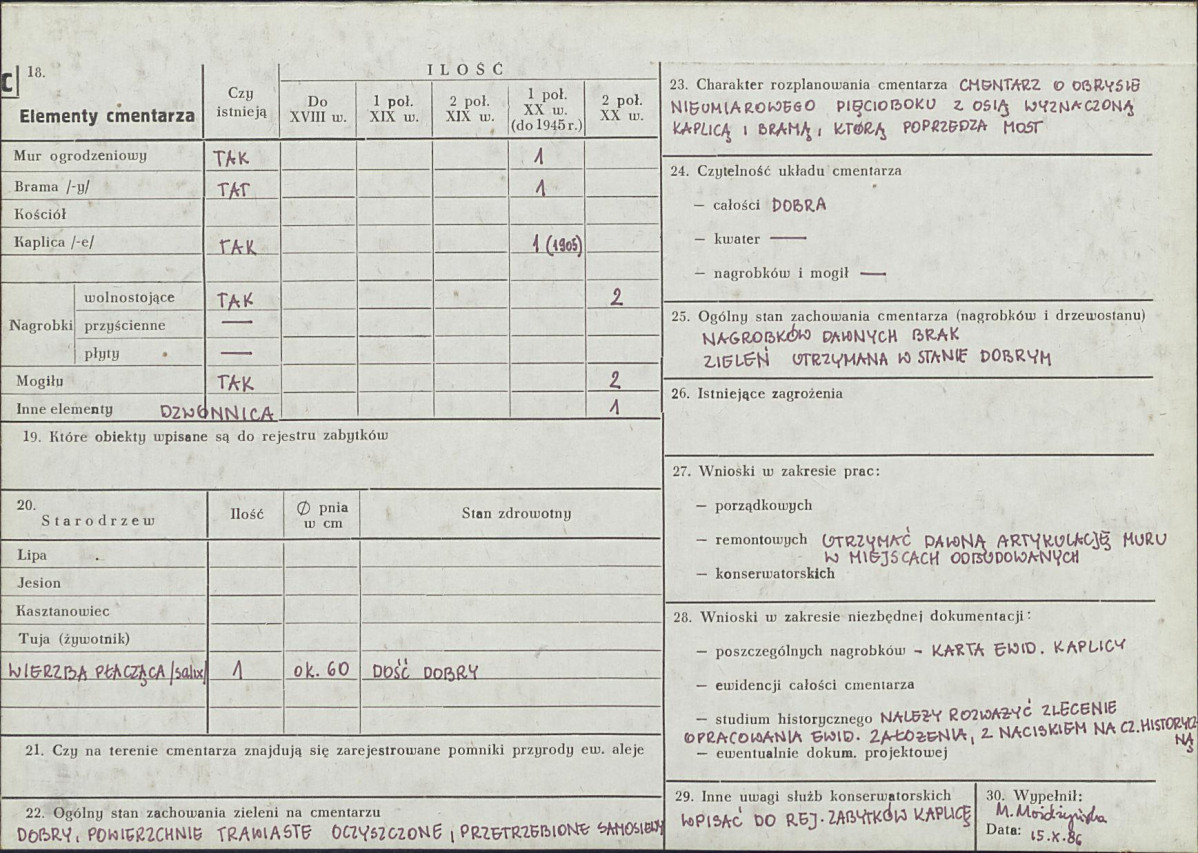 C
18.
Elementy cmentarza
Czy istnieją
ILOŚĆ
Do XVIII w.
1 poł. XIX w.
2 poł. XIX w.
1 poł. XX w. (do 1945 r.)
2 poł. XX w.
Mur ogrodzeniowy TAK 1
Brama /-y/ TAT 1
Kościół
Kaplica /-e/ TAK 1 (1905)
Nagrobki
wolnostojące TAK 2
przyścienne —
płyty —
Mogiły TAK 2
Inne elementy DZWONNICA 1
19. Które obiekty wpisane są do rejestru zabytków
20.
Starodrzew
Ilość
Ø pnia w cm
Stan zdrowotny
Lipa
Jesion
Kasztanowiec
Tuja (żywotnik)
WIERZBA PŁACZĄCA /salix/ 1 OK. 60 DOŚĆ DOBRY
21. Czy na terenie cmentarza znajdują się zarejestrowane pomniki przyrody ew. aleje
22. Ogólny stan zachowania zieleni na cmentarzu
DOBRY, POWIERZCHNIE TRAWIASTE OCZYSZCZONE, PRZETRZEBIONE SAMOSIEWY
23. Charakter rozplanowania cmentarza CMENTARZ O OBRYSIE
NIEUMIAROWEGO PIĘCIOBOKU Z OSIĄ WYZNACZONĄ
KAPLICĄ I BRAMĄ, KTÓRĄ POPRZEDZA MOST
24. Czytelność układu cmentarza
— całości DOBRA
— kwater —
— nagrobków i mogił —
25. Ogólny stan zachowania cmentarza (nagrobków i drzewostanu)
NAGROBKÓW DAWNYCH BRAK
ZIELEŃ UTRZYMANA W STANIE DOBRYM
26. Istniejące zagrożenia
27. Wnioski w zakresie prac:
— porządkowych
— remontowych UTRZYMAĆ DAWNĄ ARTYKULACJĘ MURU
W MIEJSCACH ODBUDOWANYCH
— konserwatorskich
28. Wnioski w zakresie niezbędnej dokumentacji:
— poszczególnych nagrobków - KARTA EWID. KAPLICY
— ewidencji całości cmentarza
— studium historycznego NALEŻY ROZWAŻYĆ ZLECENIE
OPRACOWANIA EWID. ZAŁOŻENIA, Z NACISKIEM NA CZ. HISTORYCZ-
NĄ
— ewentualnie dokum. projektowej
29. Inne uwagi służb konserwatorskich
WPISAĆ DO REJ. ZABYTKÓW KAPLICĘ
30. Wypełnił:
Data: 15.X.86